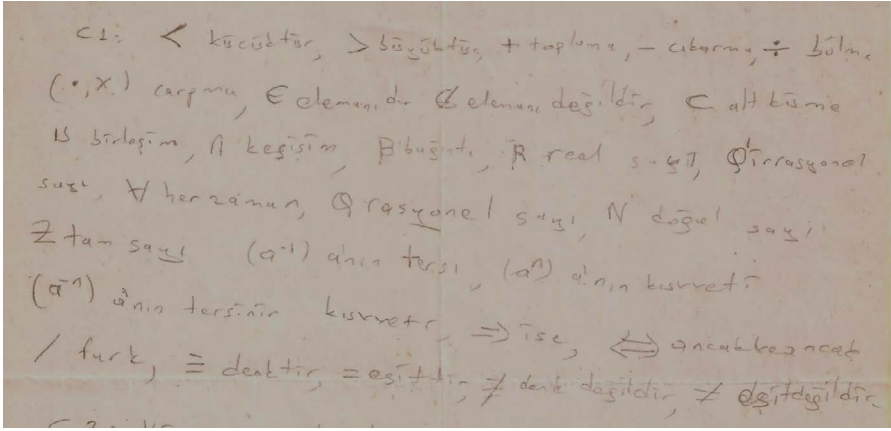 C1: < küçüktür, > büyüktür, + toplama, - çıkarma, ÷ bölme
(•, x) çarpma, ∈ elemanıdır ∉ elemanı değildir, ⊂ alt küme
∪ birleşim, ∩ kesişim, β bağıntı, R real sayı, Q' irrasyonel
sayı, ∀ her zaman, Q rasyonel sayı, N doğal sayı
Z tam sayı (a⁻¹) a'nın tersi, (aⁿ) a'nın kuvveti
(a⁻ⁿ) a'nın tersinin kuvveti, ⇒ ise, ⇔ ancak ve ancak
/ fark, ≡ denktir, = eşittir, ≢ denk değildir, ≠ eşit değildir